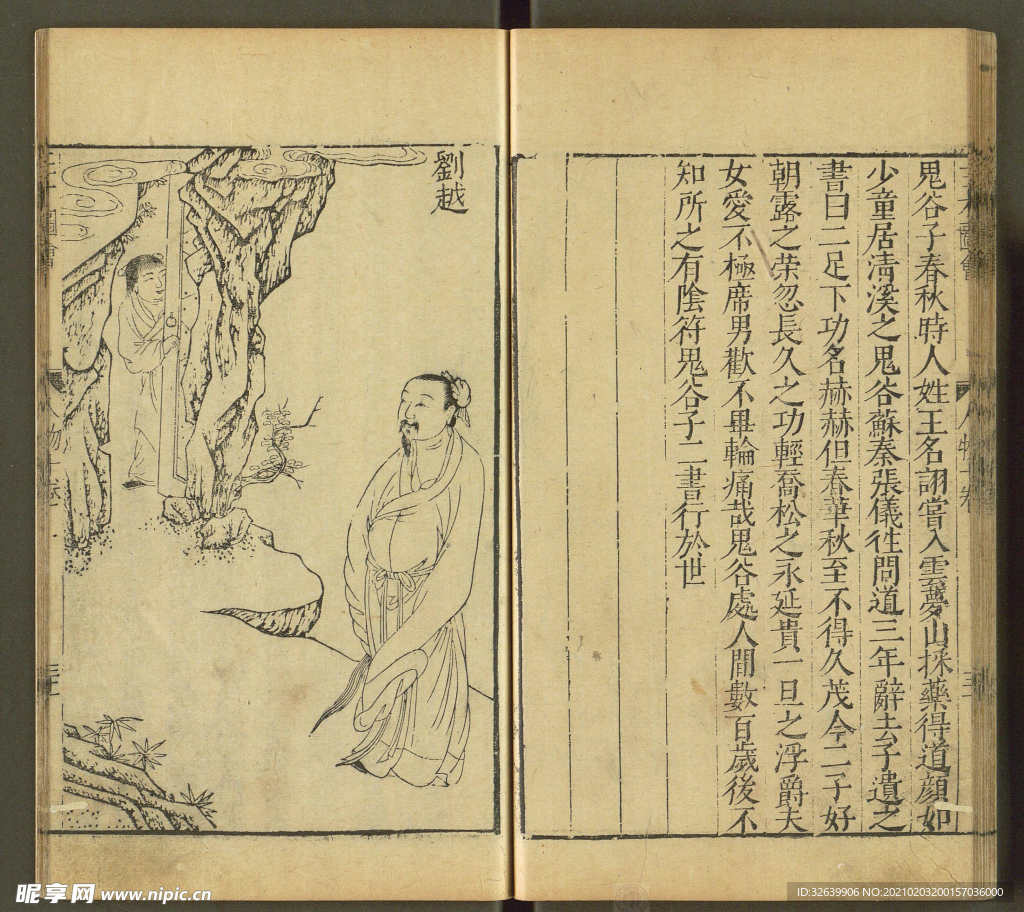 鬼谷子春秋時人姓王名詡嘗入雲夢山採藥得道顔如
少童居清溪之鬼谷蘇秦張儀徃問道三年辭去子遺之
書曰二足下功名赫赫但春華秋至不得久茂今二子好
朝露之荣忽長久之功輕喬松之永延貴一旦之浮爵夫
女愛不極席男歡不畢輪痛哉鬼谷處人間數百歲後不
知所之有陰符鬼谷子二書行於世
劉越
昵享网 www.nipic.cn
ID:32639906 NO:20210203200157036000